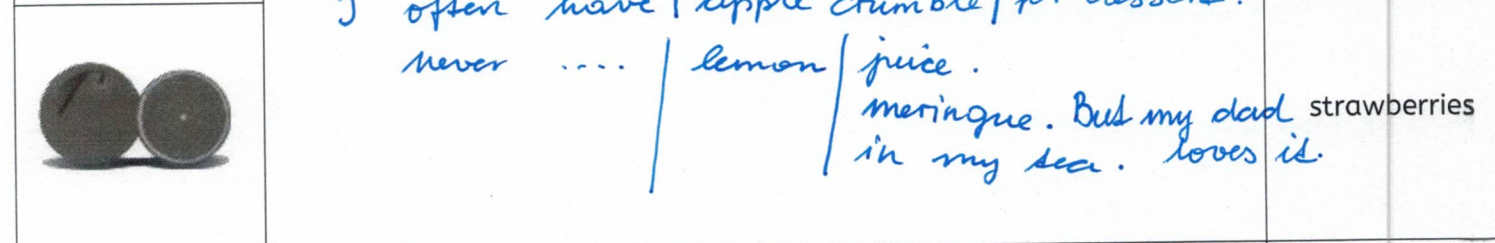 I often have | apple crumble | for dessert.
never .... | lemon | juice.
meringue. But my dad
in my tea. loves it.
strawberries